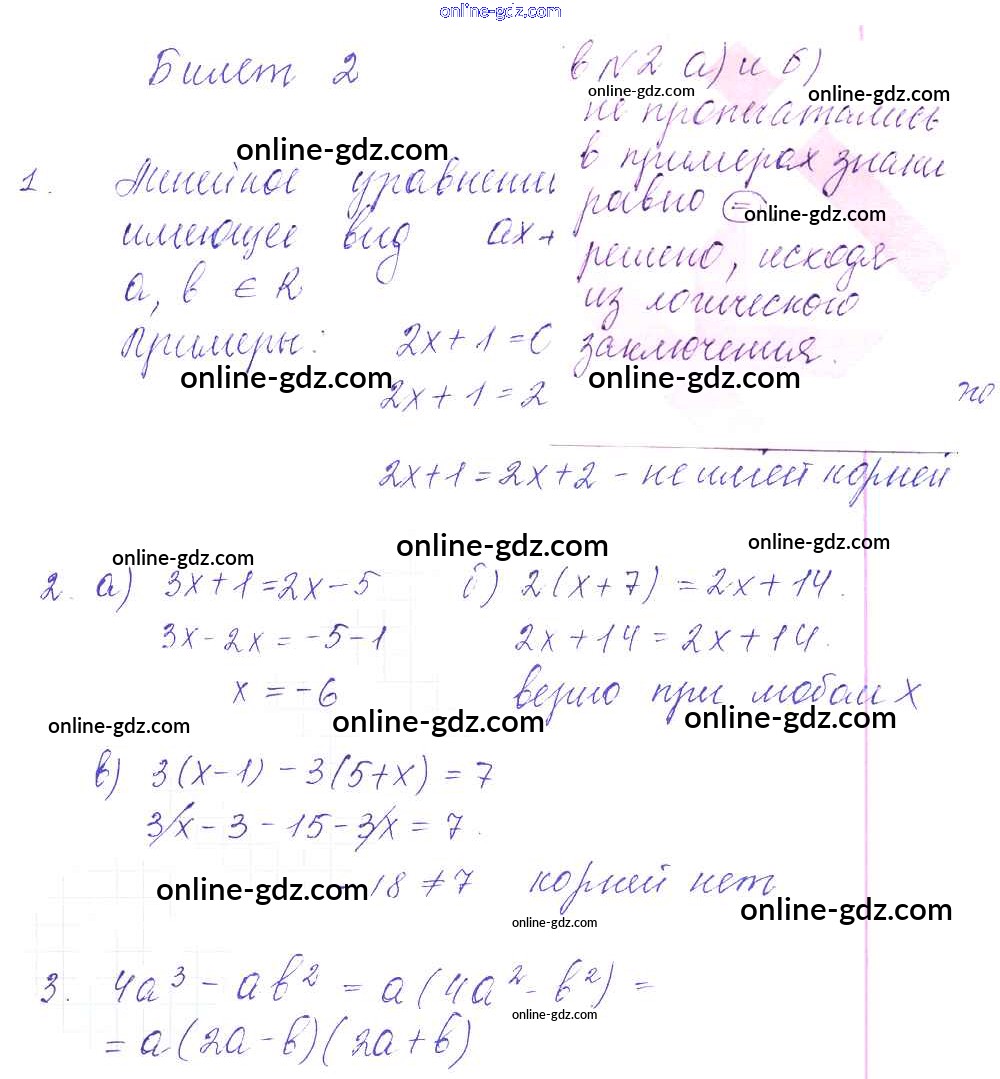 online-gdz.com
Билет 2
в №2 а) и б)
online-gdz.com
online-gdz.com
не пропечатались
в примерах знаки
равно =
online-gdz.com
решено, исходя
из логического
заключения.
online-gdz.com
online-gdz.com
1. Линейное уравнении
имеющее вид ax+
a, b ∈ R
Примеры: 2x+1=0
online-gdz.com
2x+1=2
2x+1=2x+2 - не имеет корней
online-gdz.com
online-gdz.com
online-gdz.com
2. а) 3x+1=2x-5
3x-2x=-5-1
x=-6
б) 2(x+7)=2x+14.
2x+14=2x+14.
верно при любом x
online-gdz.com
online-gdz.com
online-gdz.com
в) 3(x-1)-3(5+x)=7
3x-3-15-3x=7.
18≠7 корней нет
online-gdz.com
online-gdz.com
online-gdz.com
3. 4a³-ab²=a(4a²-b²)=
=a(2a-b)(2a+b)
online-gdz.com